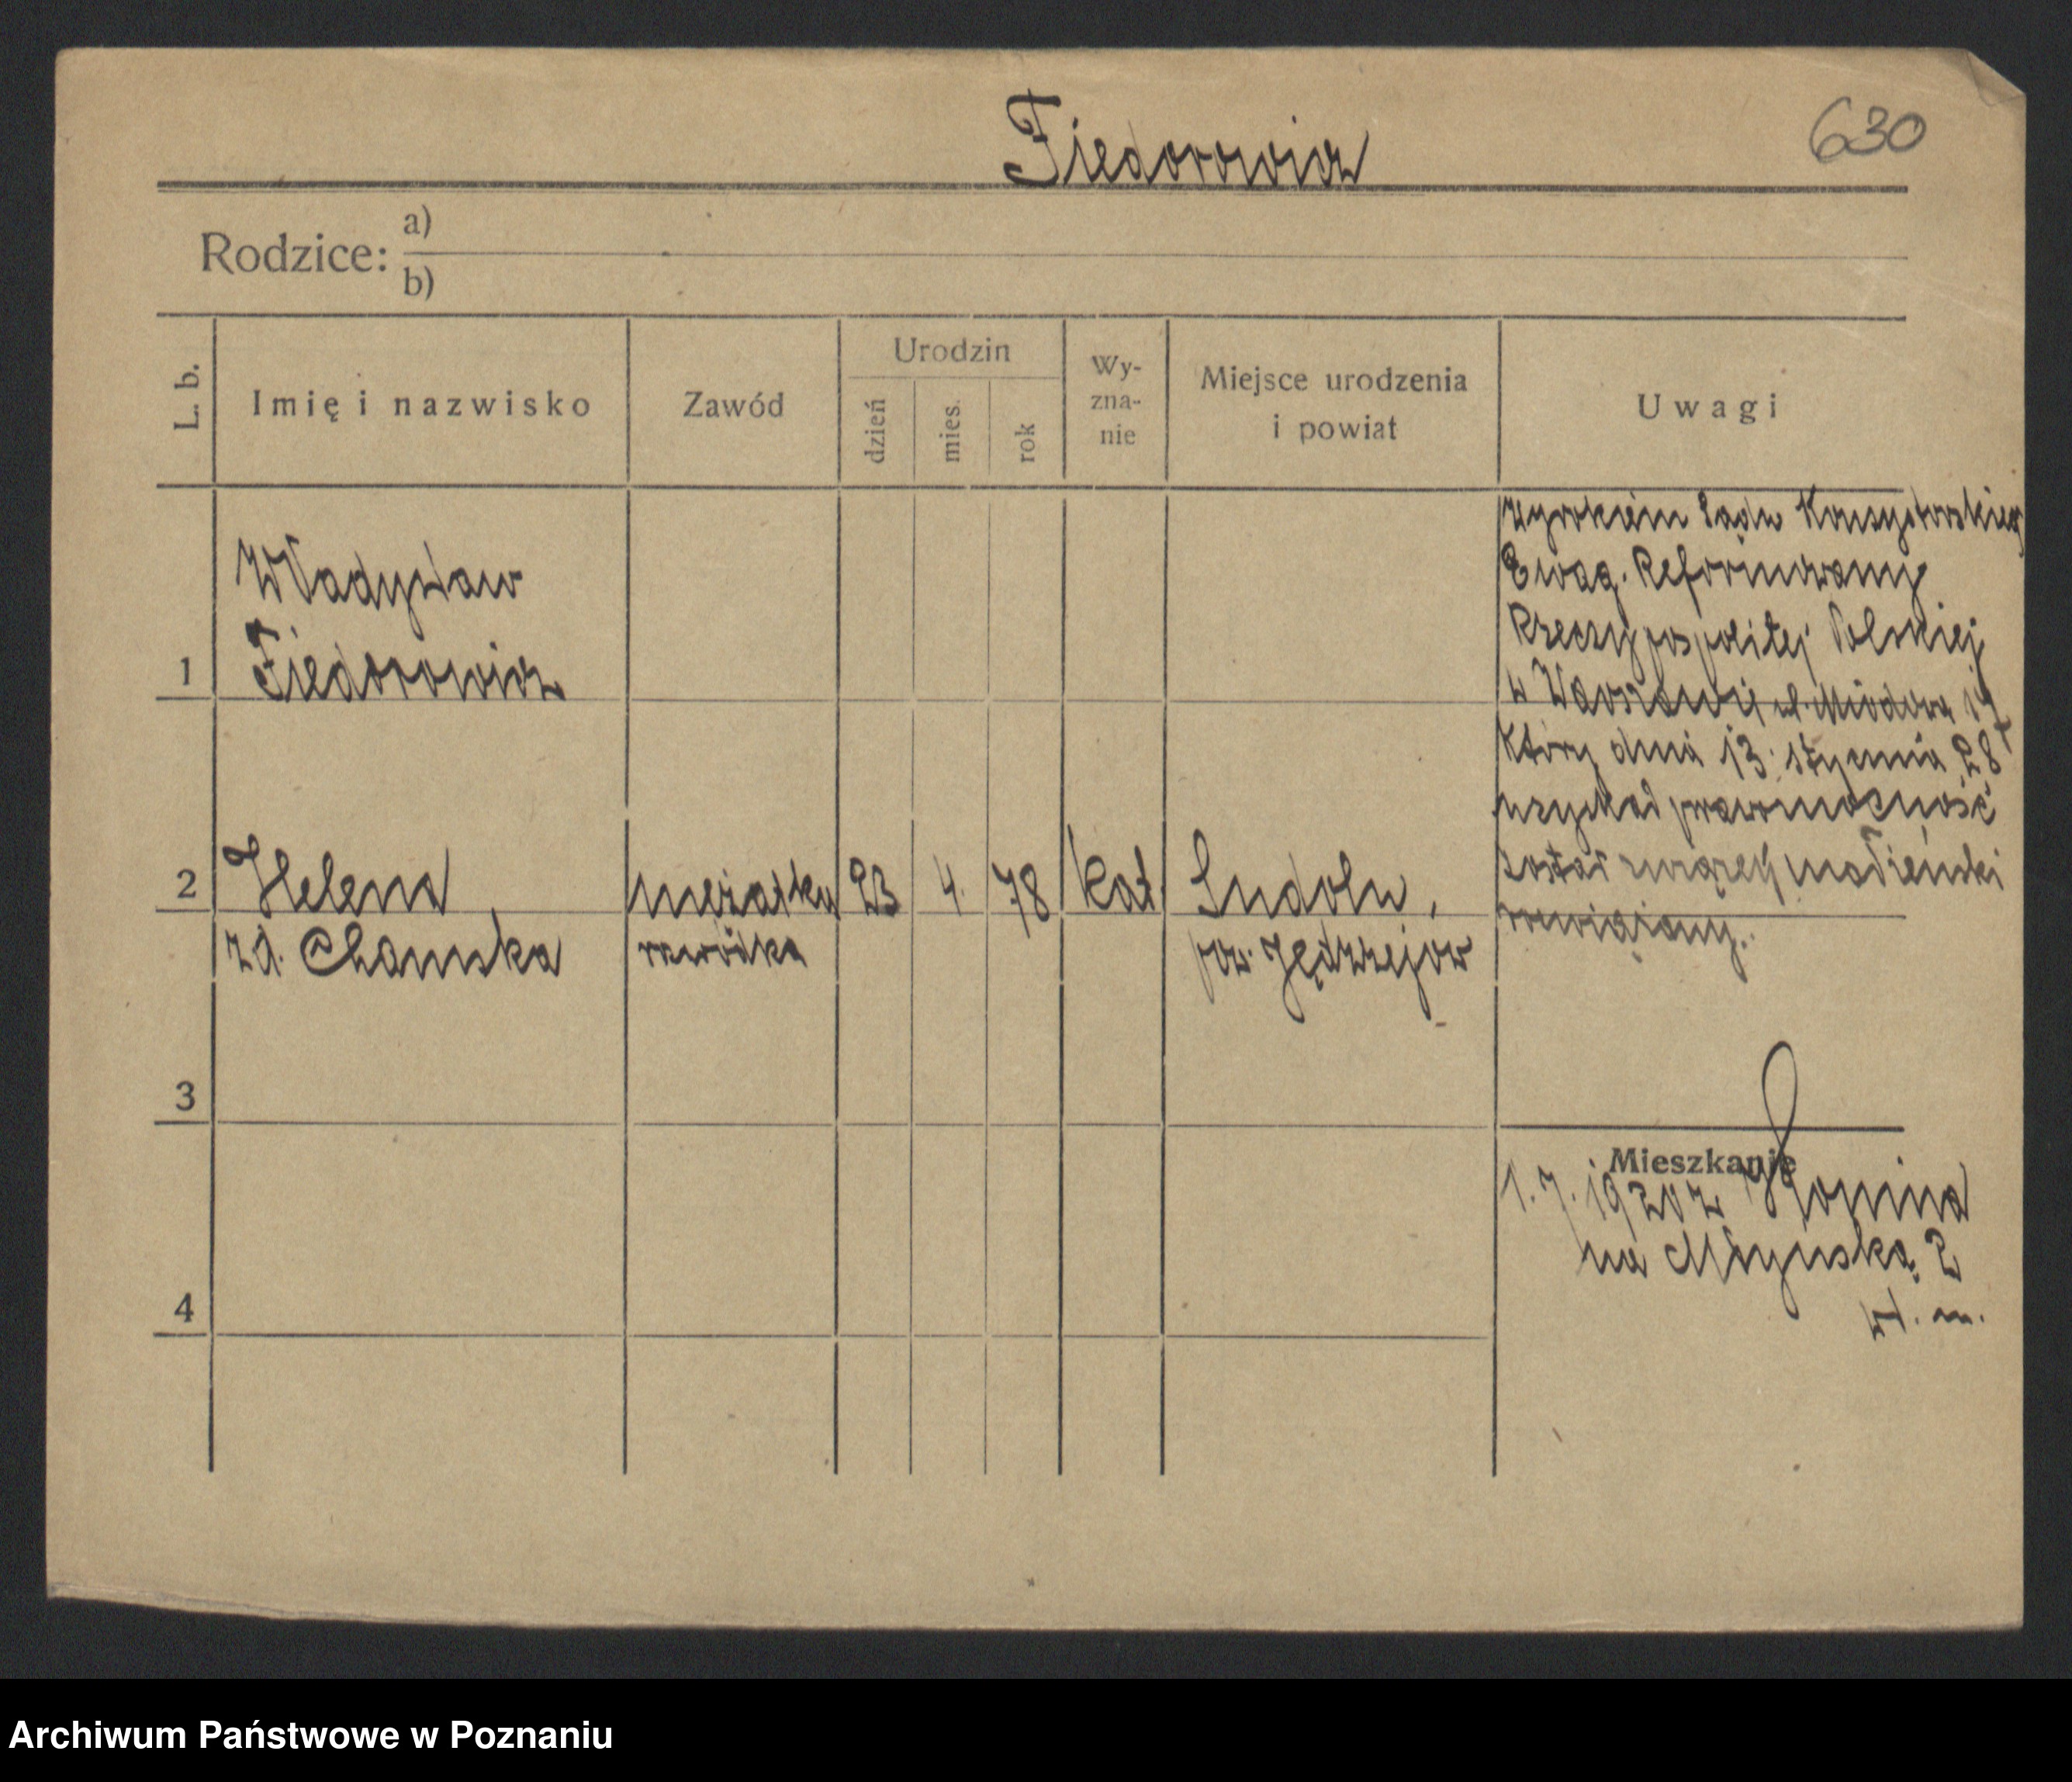 Fiedorowicz
630
Rodzice: a)
b)
L. b.
Imię i nazwisko
Zawód
Urodzin
dzień
mies.
rok
Wy-
zna-
nie
Miejsce urodzenia
i powiat
Uwagi
1
Władysław
Fiedorowicz
Wyrokiem Sądu Konsystorskiego
Ewag. Reformowany
Rzeczypospolitej Polskiej
w Warszawie, ul. Miodowa
który dnia 13. stycznia 28
uzyskał prawomocność
został związek małżeński
rozwiązany.
2
Helena
zd. Chamska
mężatka
rozwódka
23
4.
78
kat.
pow. Jędrzejow
3
Mieszkanie
1. 7. 1920 z Konina
na 2
4
Archiwum Państwowe w Poznaniu